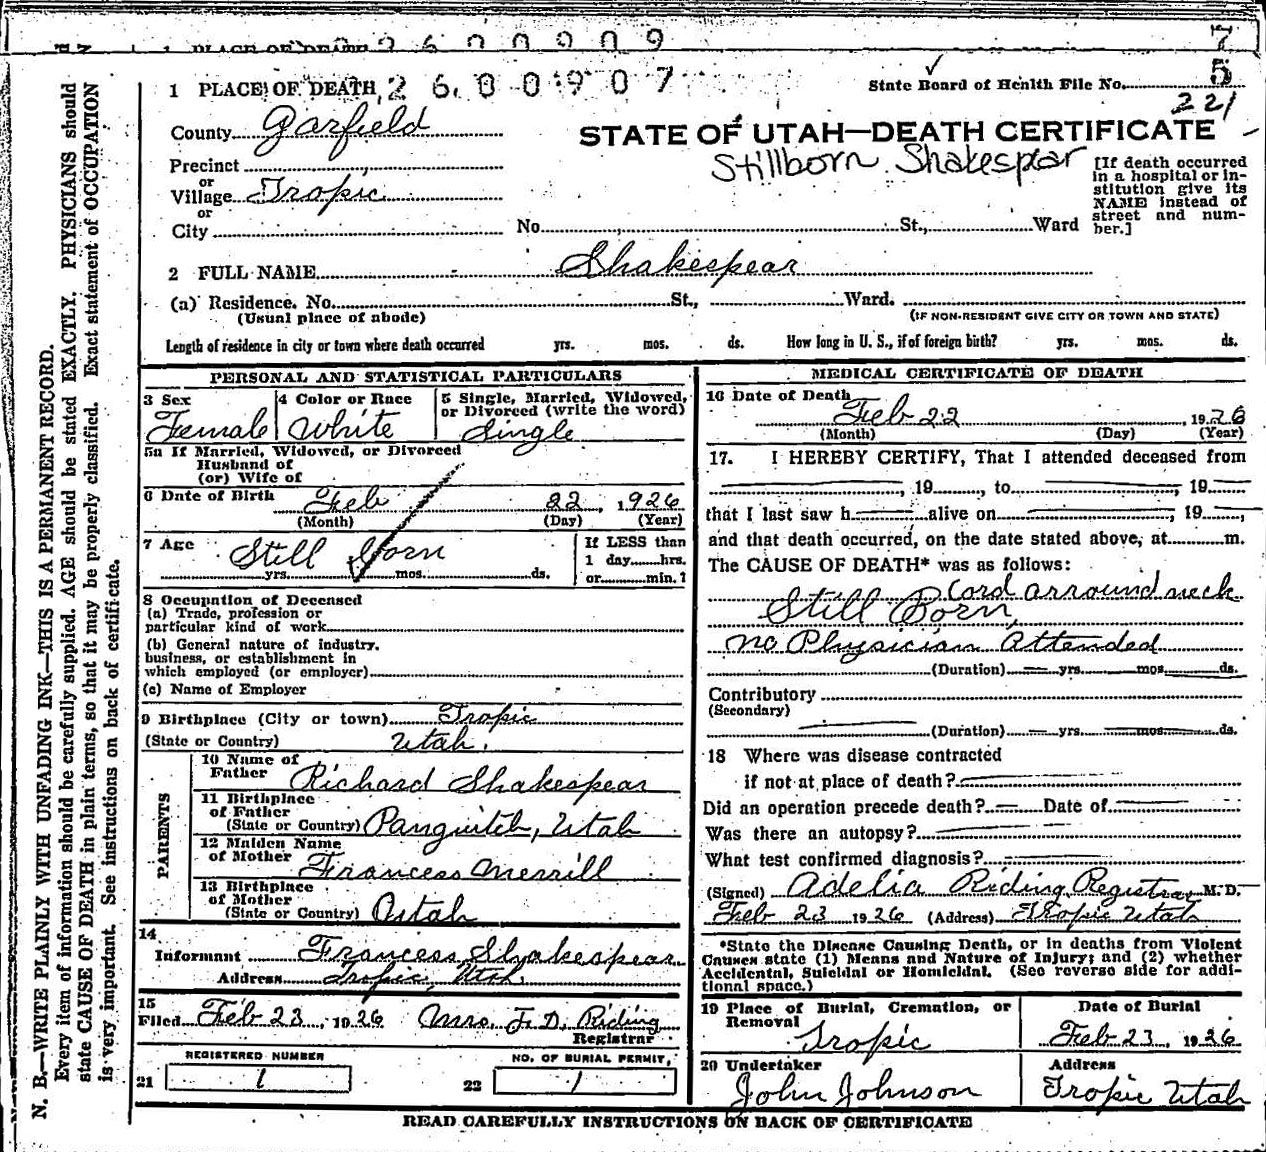 1 PLACE OF DEATH 2600909 7
1 PLACE OF DEATH 2600907 State Board of Health File No. 5
221
County Garfield STATE OF UTAH—DEATH CERTIFICATE
Stillborn Shakespear
Precinct
or
Village Tropic
or
City No. St., Ward
[If death occurred
in a hospital or in-
stitution give its
NAME instead of
street and num-
ber.]
2 FULL NAME Shakespear
(a) Residence. No. St., Ward.
(Usual place of abode) (IF NON-RESIDENT GIVE CITY OR TOWN AND STATE)
Length of residence in city or town where death occurred yrs. mos. ds. How long in U. S., if of foreign birth? yrs. mos. ds.
PERSONAL AND STATISTICAL PARTICULARS
3 Sex
Female
4 Color or Race
White
5 Single, Married, Widowed,
or Divorced (write the word)
Single
5a If Married, Widowed, or Divorced
Husband of
(or) Wife of
6 Date of Birth Feb 22, 1926
(Month) (Day) (Year)
7 Age Still Born
yrs. mos. ds.
If LESS than
1 day hrs.
or min.?
8 Occupation of Deceased
(a) Trade, profession or
particular kind of work
(b) General nature of industry,
business, or establishment in
which employed (or employer)
(c) Name of Employer
9 Birthplace (City or town) Tropic
(State or Country) Utah.
PARENTS
10 Name of
Father Richard Shakespear
11 Birthplace
of Father
(State or Country) Panguitch, Utah
12 Maiden Name
of Mother Francess Merrill
13 Birthplace
of Mother
(State or Country) Utah
14
Informant Francess Shakespear
Address Tropic, Utah.
15
Filed Feb 23, 1926 Mrs. F. D. Riding
Registrar
REGISTERED NUMBER NO. OF BURIAL PERMIT,
21 1 22 1
MEDICAL CERTIFICATE OF DEATH
16 Date of Death
Feb 22, 1926
(Month) (Day) (Year)
17. I HEREBY CERTIFY, That I attended deceased from
, 19 , to , 19
that I last saw h alive on , 19 ,
and that death occurred, on the date stated above, at m.
The CAUSE OF DEATH* was as follows:
Cord arround neck
Still Born,
no Physician Attended
(Duration) yrs. mos. ds.
Contributory
(Secondary)
(Duration) yrs. mos. ds.
18 Where was disease contracted
if not at place of death?
Did an operation precede death? Date of
Was there an autopsy?
What test confirmed diagnosis?
(Signed) Adelia Riding Registrar M. D.
Feb 23 1926 (Address) Tropic Utah
*State the Disease Causing Death, or in deaths from Violent
Causes state (1) Means and Nature of Injury; and (2) whether
Accidental, Suicidal or Homicidal. (See reverse side for addi-
tional space.)
19 Place of Burial, Cremation, or
Removal
Tropic
Date of Burial
Feb 23, 1926
20 Undertaker
John Johnson
Address
Tropic Utah
READ CAREFULLY INSTRUCTIONS ON BACK OF CERTIFICATE
N. B.—WRITE PLAINLY WITH UNFADING INK—THIS IS A PERMANENT RECORD.
Every item of information should be carefully supplied. AGE should be stated EXACTLY. PHYSICIANS should
state CAUSE OF DEATH in plain terms, so that it may be properly classified. Exact statement of OCCUPATION
is very important. See instructions on back of certificate.